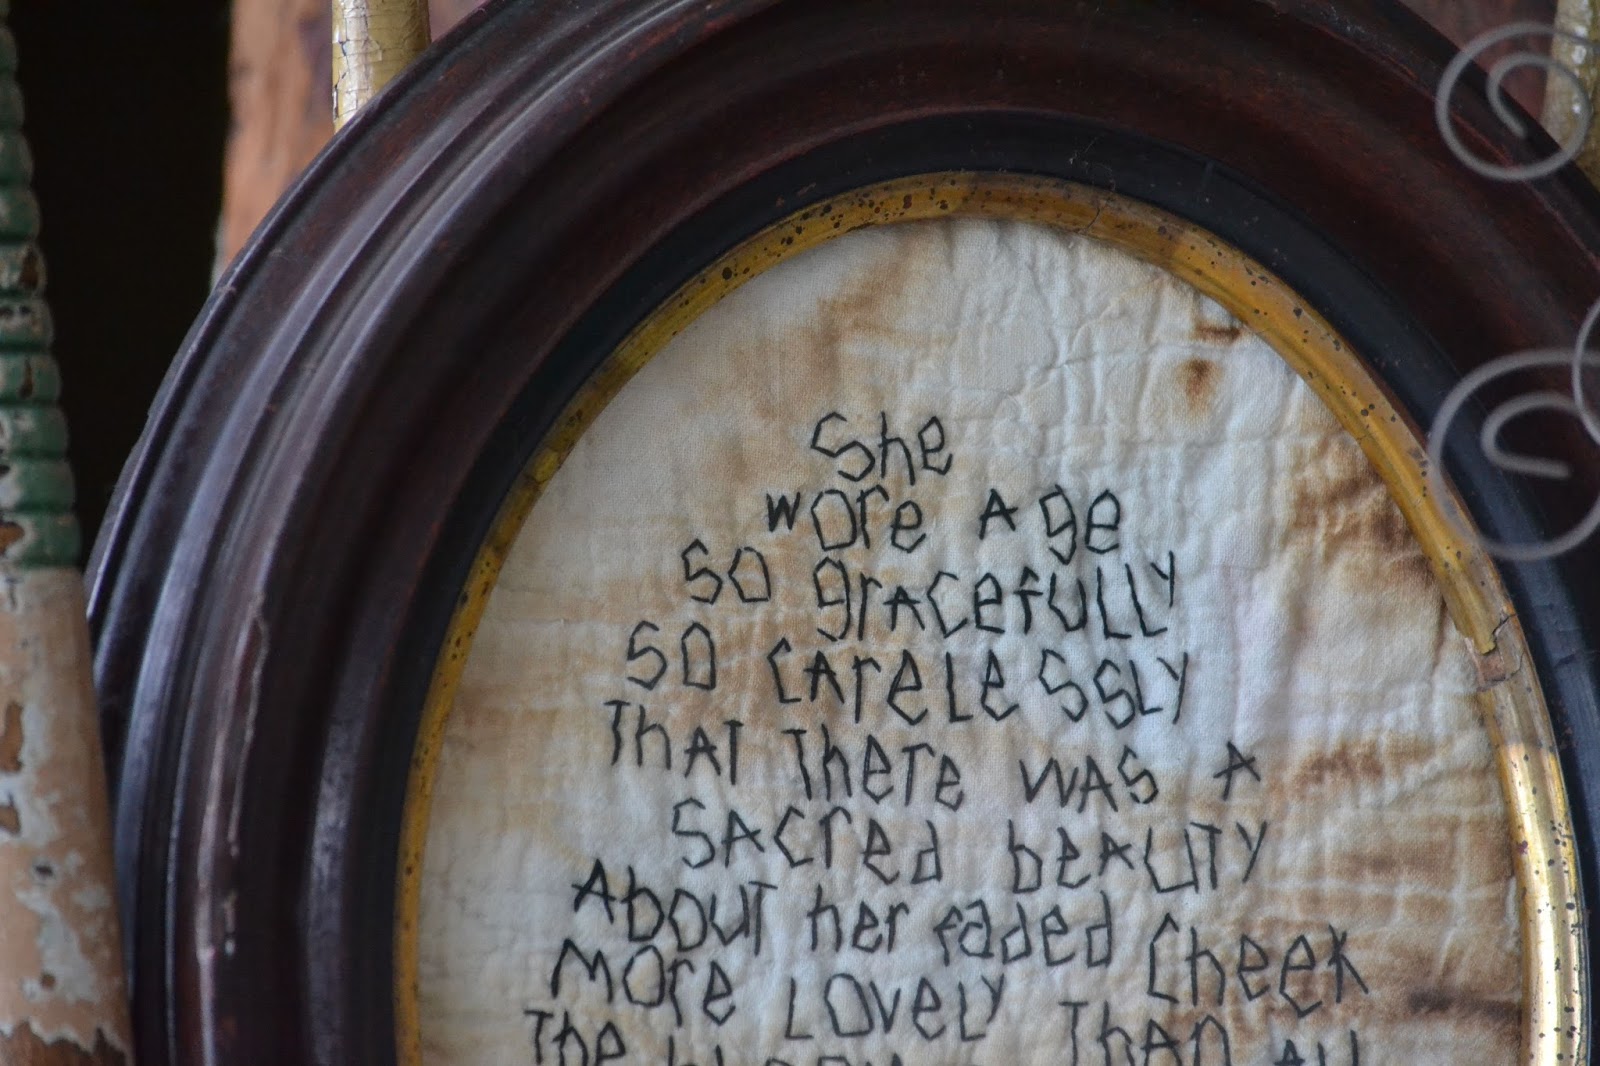 She
wore Age
so gracefully
so carelessly
That there was a
sacred beauty
About her faded cheek
More Lovely Than All
The